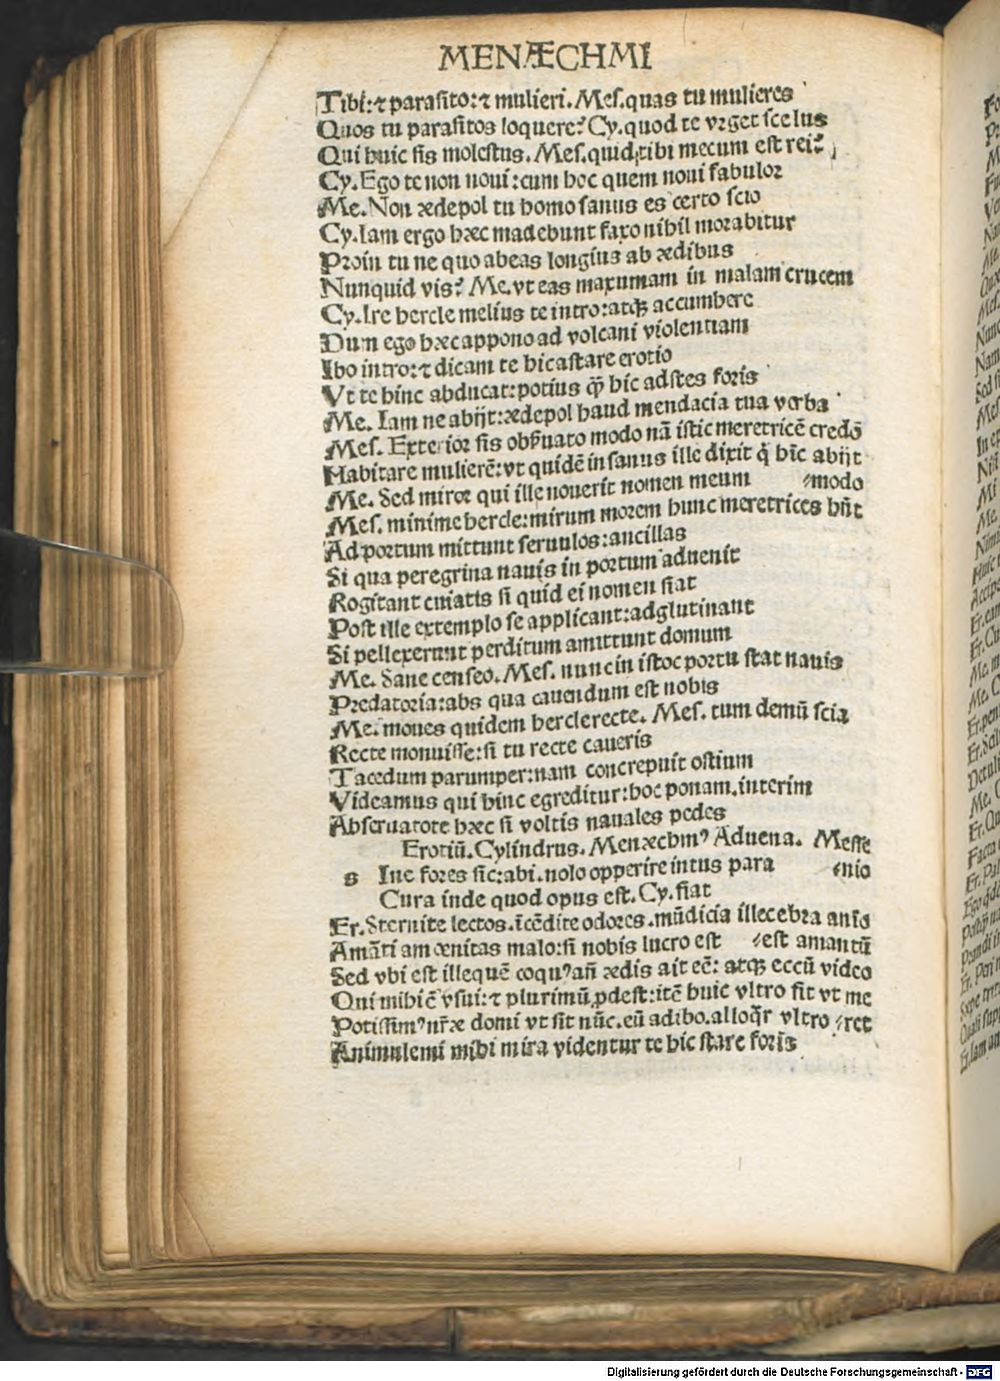 MENÆCHMI
Tibi:⁊ parasito:⁊ mulieri. Mes.quas tu mulieres
Quos tu parasitos loquere? Cy.quod te vrget scelus
Qui huic sis molestus. Mes.quid tibi mecum est rei?
Cy.Ego te non noui:cum hoc quem noui fabulor
Me.Non ædepol tu homo sanus es certo scio
Cy.Iam ergo hæc madebunt faxo nihil morabitur
Proin tu ne quo abeas longius ab ædibus
Nunquid vis? Me.vt eas maxumam in malam crucem
Cy.Ire hercle melius te intro:atqꝫ accumbere
Dum ego hæc appono ad volcani violentiam
Ibo intro:⁊ dicam te hic astare erotio
Vt te hinc abducat:potius qͫ hic adstes foris
Me. Iam ne abijt:ædepol haud mendacia tua verba
Mes. Exterior sis obẜuato modo nã istic meretricẽ credõ
Habitare mulierẽ:vt quidẽ insanus ille dixit q̇ hĩc abijt
Me. Sed miror qui ille nouerit nomen meum ⸗modo
Mes. minime hercle:mirum morem hunc meretrices hñt
Ad portum mittunt seruulos:ancillas
Si qua peregrina nauis in portum aduenit
Rogitant cuiatis si quid ei nomen siat
Post ille extemplo se applicant:adglutinant
Si pellexerunt perditum amittunt domum
Me. Sane censeo. Mes. nunc in istoc portu stat nauis
Predatoria:abs qua cauendum est nobis
Me. moues quidem hercle recte. Mes. tum demũ scia
Recte monuisse:si tu recte caueris
Tacedum parumper:nam concrepuit ostium
Videamus qui hinc egreditur:hoc ponam.interim
Abseruatote hæc si voltis nauales pedes
Erotiũ. Cylindrus. Menæchmꝰ Aduena. Messe
s Ine fores sic:abi.nolo opperire intus para ⸗nio
Cura inde quod opus est. Cy.fiat
Er.Sternite lectos.ĩcẽdite odores.mũdicia illecebra anĩo
Amãti amœnitas malo:si nobis lucro est ⸗est amantũ
Sed vbi est ille quẽ coquꝰ añ ædis ait eẽ: atqꝫ eccũ video
Qui mihi ẽ vsui:⁊ plurimũ ꝓdest:itẽ huic vltro fit vt me
Potissimꝰ nr̃æ domi vt sit nũc.eũ adibo.alloq̃r vltro ⸗ret
Animule mi mihi mira videntur te hic stare foris
Digitalisierung gefördert durch die Deutsche Forschungsgemeinschaft - DFG